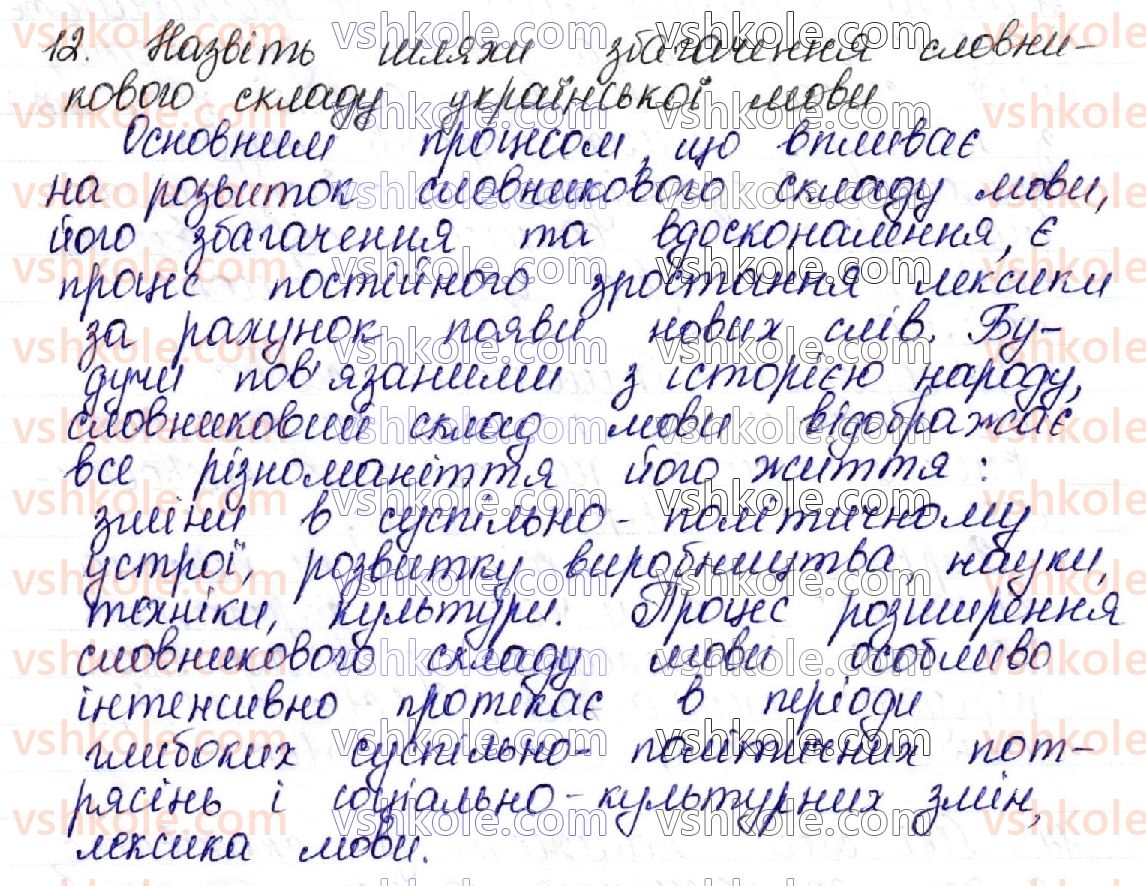 12. Назвіть шляхи збагачення словни-
кового складу української мови
Основним процесом, що впливає
на розвиток словникового складу мови,
його збагачення та вдосконалення, є
процес постійного зростання лексики
за рахунок появи нових слів. Бу-
дучи пов'язаними з історією народу,
словниковий склад мови відображає
все різноманіття його життя:
зміни в суспільно-політичному
устрої, розвитку виробництва, науки,
техніки, культури. Процес розширення
словникового складу мови особливо
інтенсивно протікає в періоди
глибоких суспільно-політичних пот-
рясінь і соціально-культурних змін,
лексика мови.